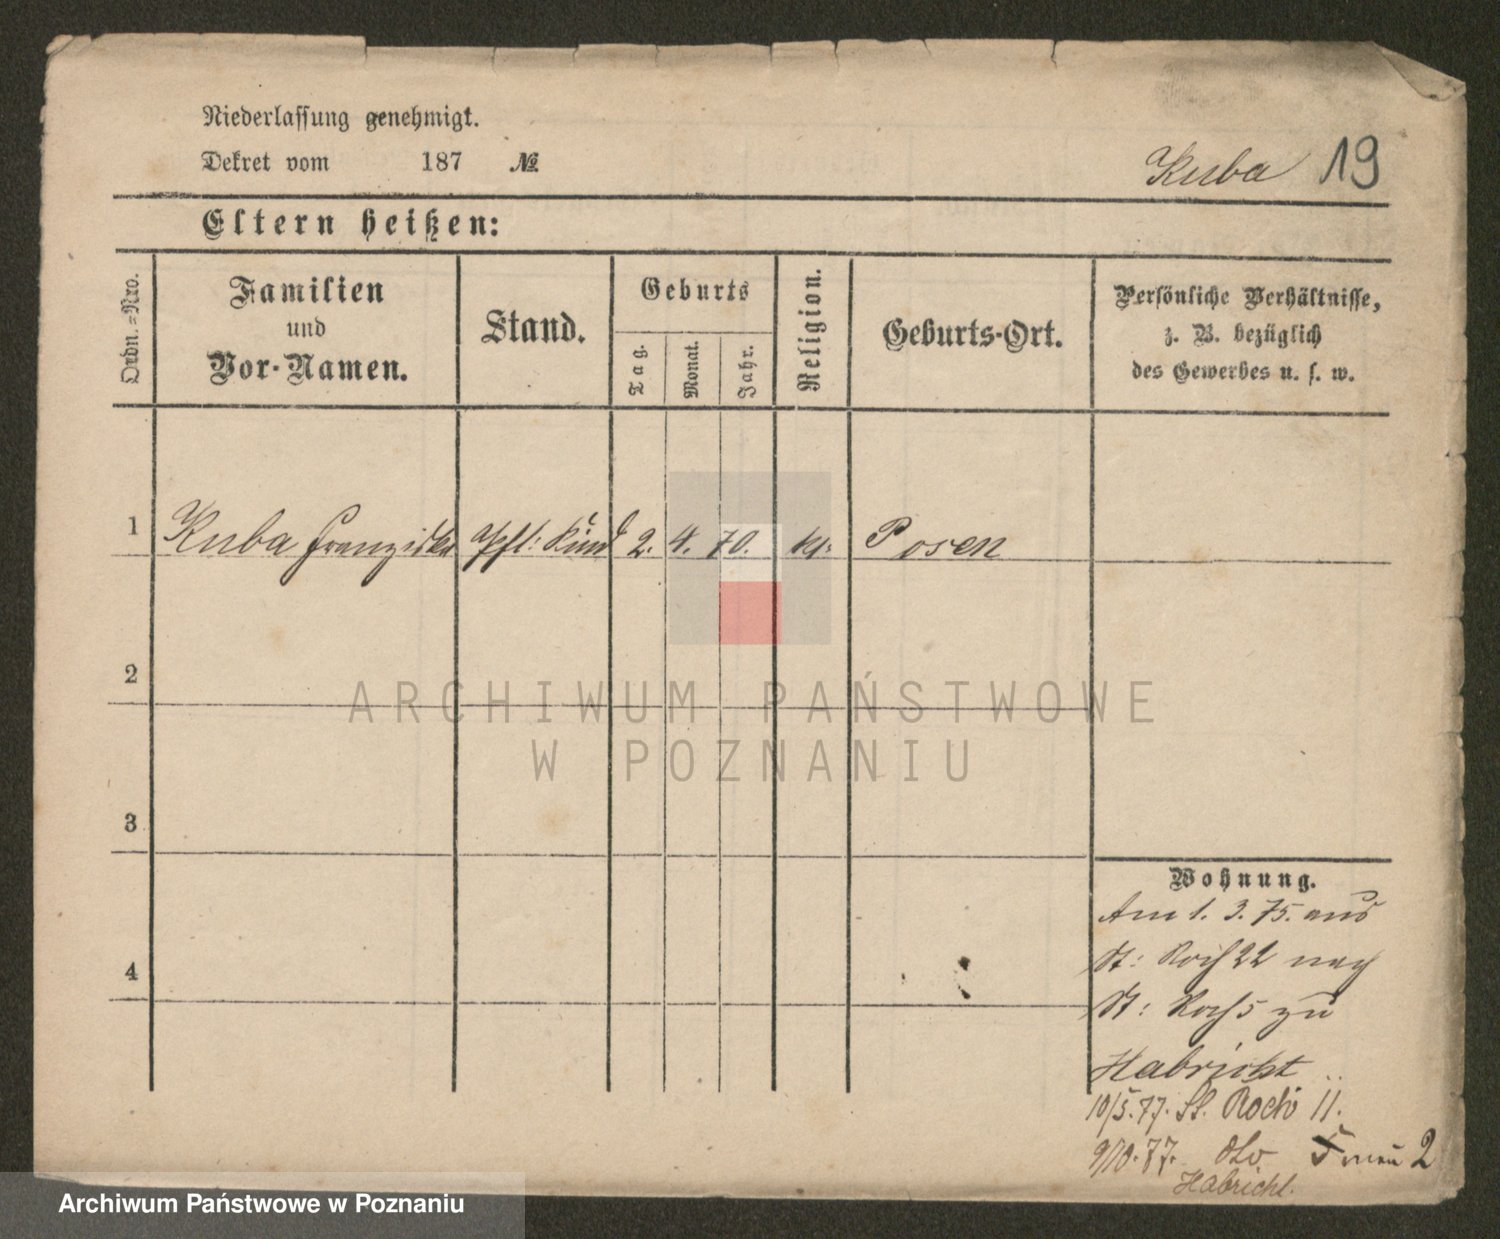 Niederlassung genehmigt.
Dekret vom 187 №
Kuba 19
Eltern heißen:
Ordn.-Nro.
Familien
und
Vor-Namen.
Stand.
Geburts
Tag.
Monat.
Jahr.
Religion.
Geburts-Ort.
Persönliche Verhältnisse,
z. B. bezüglich
des Gewerbes u. s. w.
1 Kuba Franziska Pfl: Kind 2. 4. 70. kt: Posen
2
3
4
Wohnung.
Am 1. 3. 75. aus
St: Roch 22 nach
St: Roch 5 zu
Habricht
10/5. 77. St. Roch 11.
9/10. 77. dto neu 2
Habricht.
ARCHIWUM PAŃSTWOWE
W POZNANIU
Archiwum Państwowe w Poznaniu